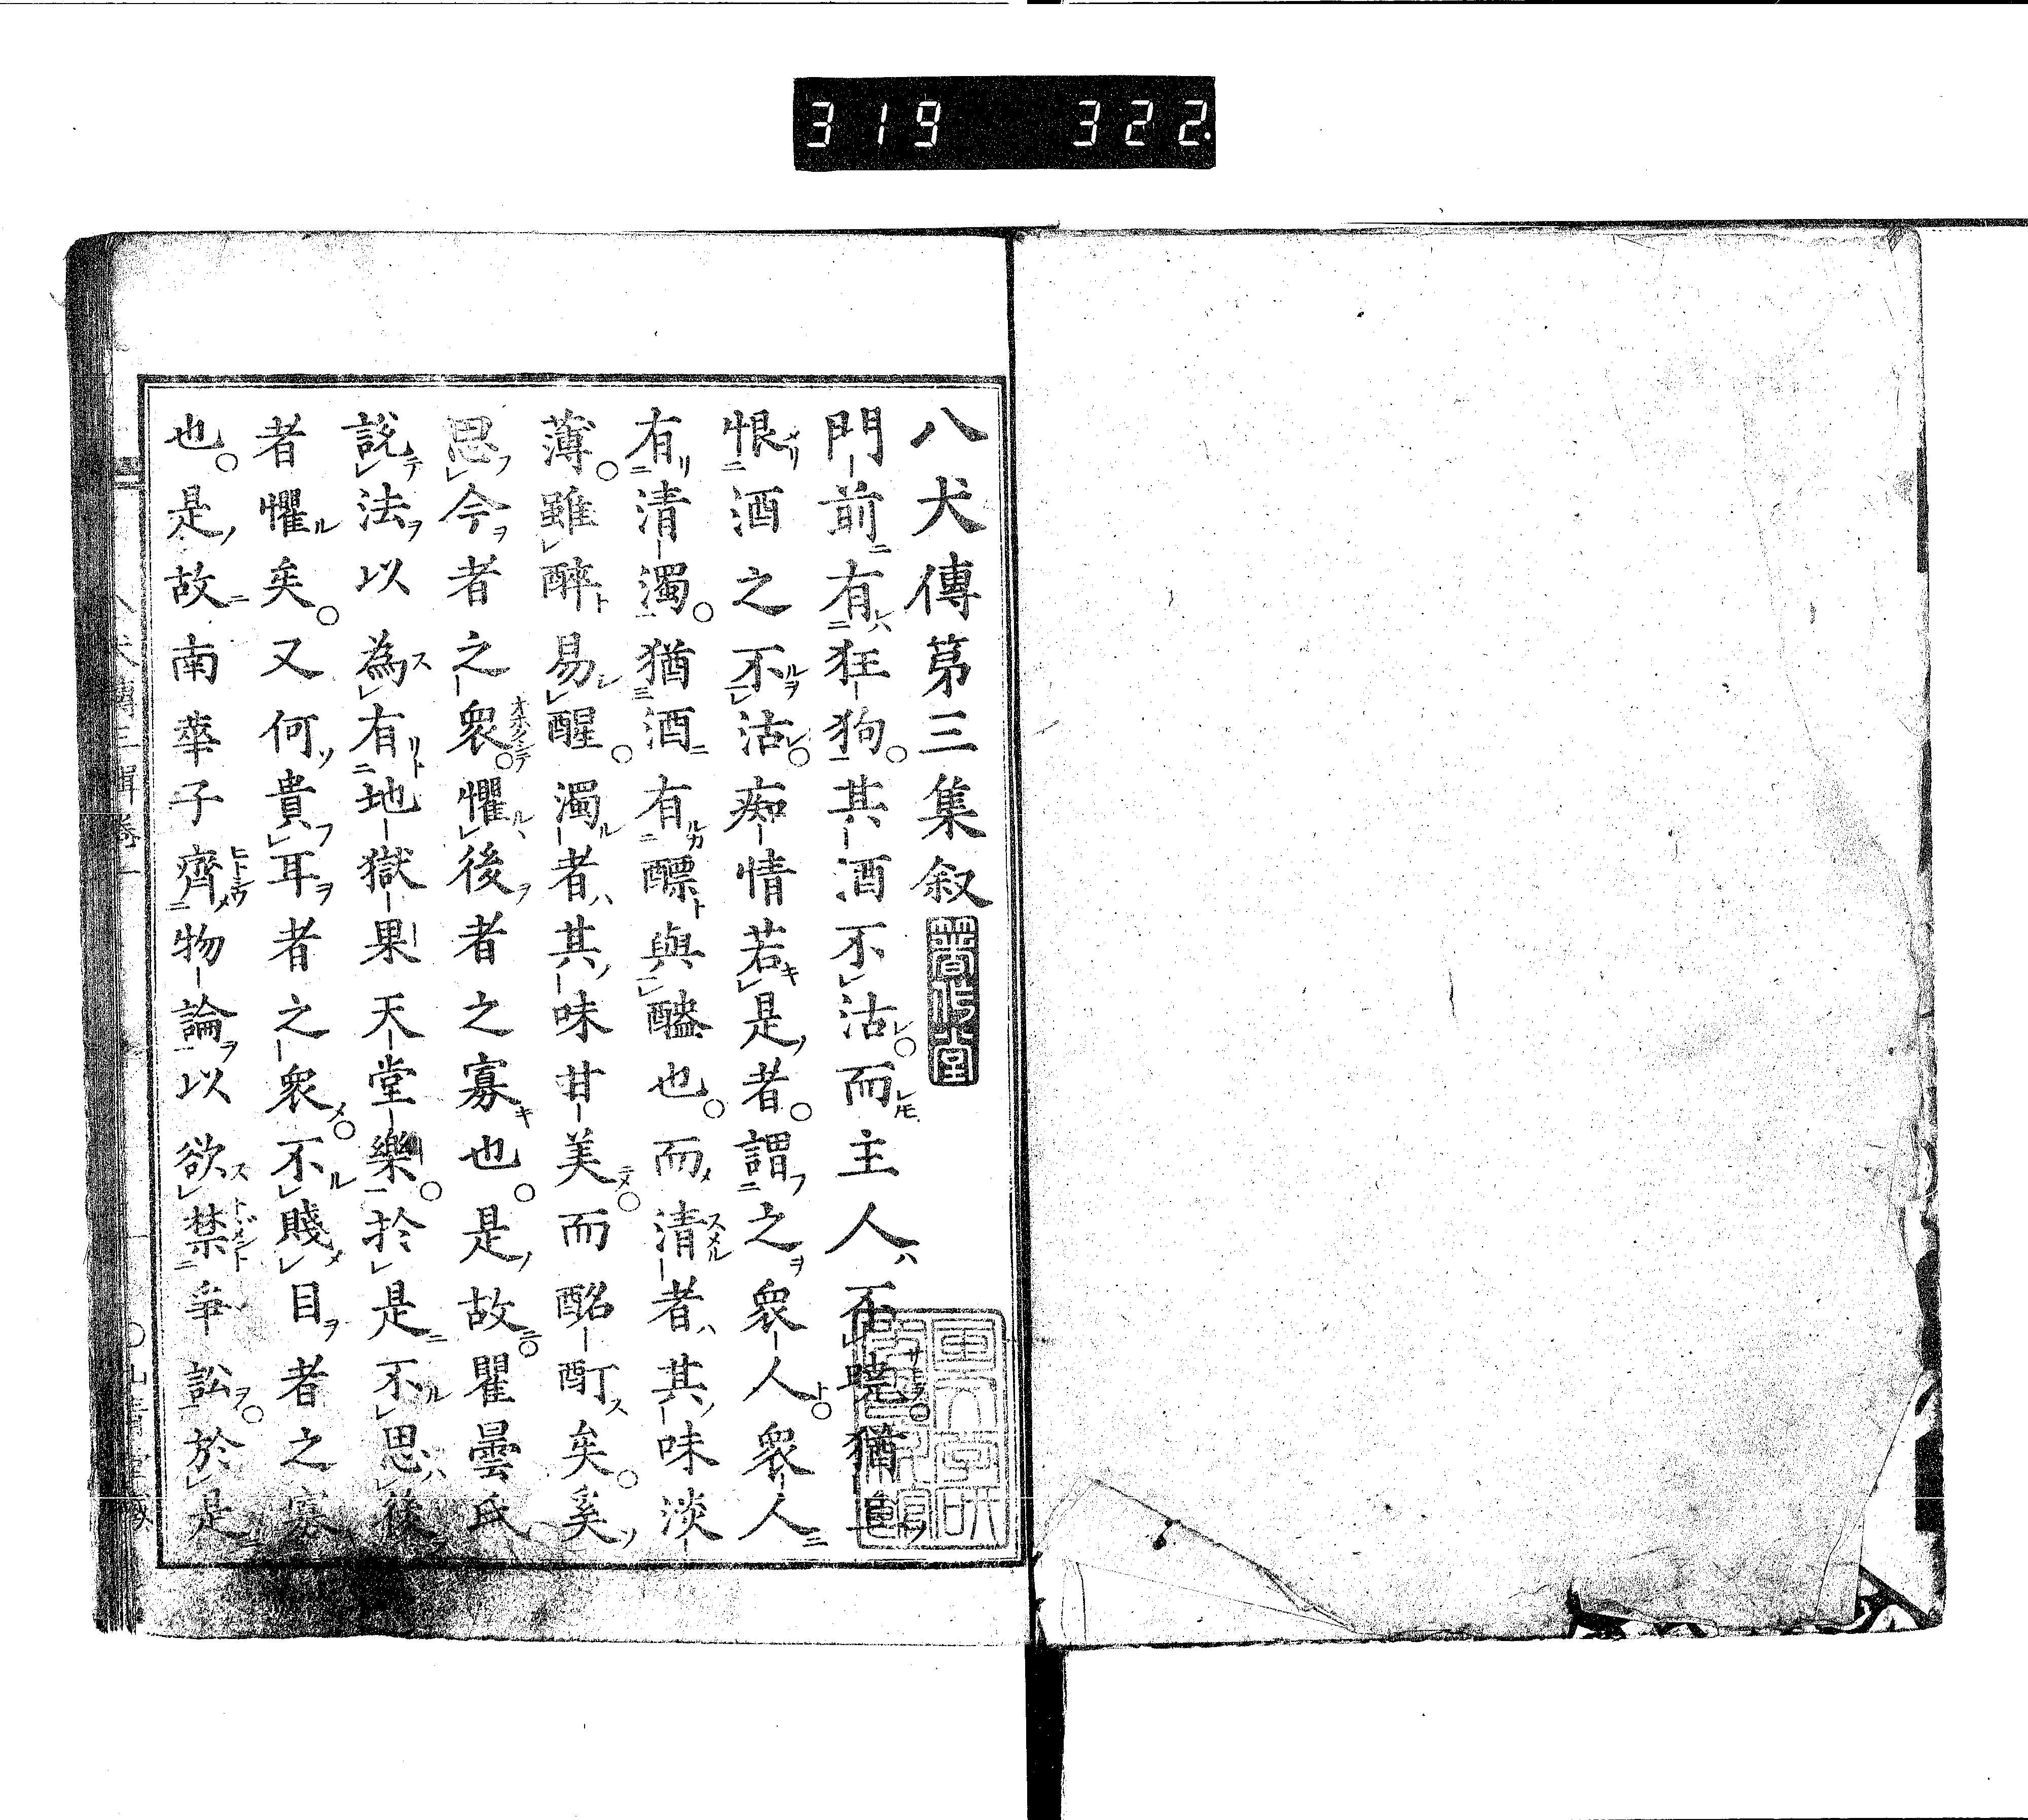 319 322
八犬傳第三集叙
門前有狂狗其酒不沽而主人不曉猶且
恨酒之不沽痴情若是者謂之衆人衆人
有清濁猶酒有醥與醠也而清者其味淡
薄雖醉易醒濁者其味甘美而酩酊矣奚
思今者之衆懼後者之寡也是故瞿曇氏
説法以為有地獄果天堂樂於是不思後
者懼矣又何貴耳者之衆不賤目者之寡
也是故南華子齊物論以欲禁爭訟於是